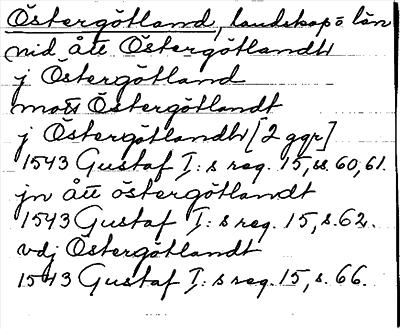 Östergötland, landskap o län
nid ått Östergötlandh
j Östergötland
mott Östergötlandt
j Östergötlandh [2 ggr]
1543 Gustaf I:s reg. 15, ss. 60, 61.
jn ått östergötlandt
1543 Gustaf I:s reg. 15, s. 62.
vdj Östergötlandt
1543 Gustaf I:s reg. 15, s. 66.